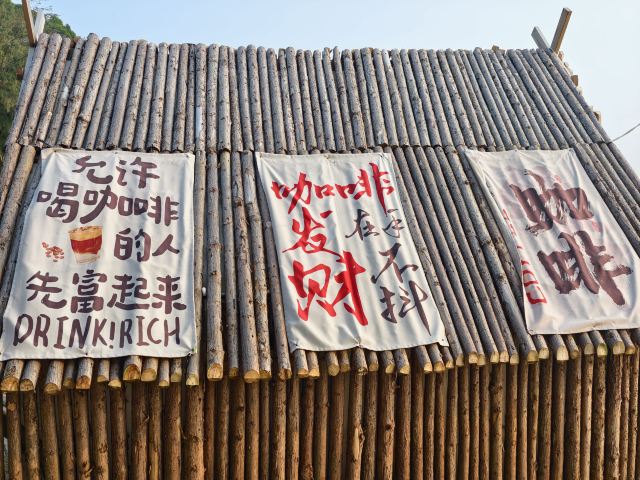 允许
喝咖啡
的人
先富起来
DRINK!RICH
咖啡
在手
发
不
财
抖
咖
啡